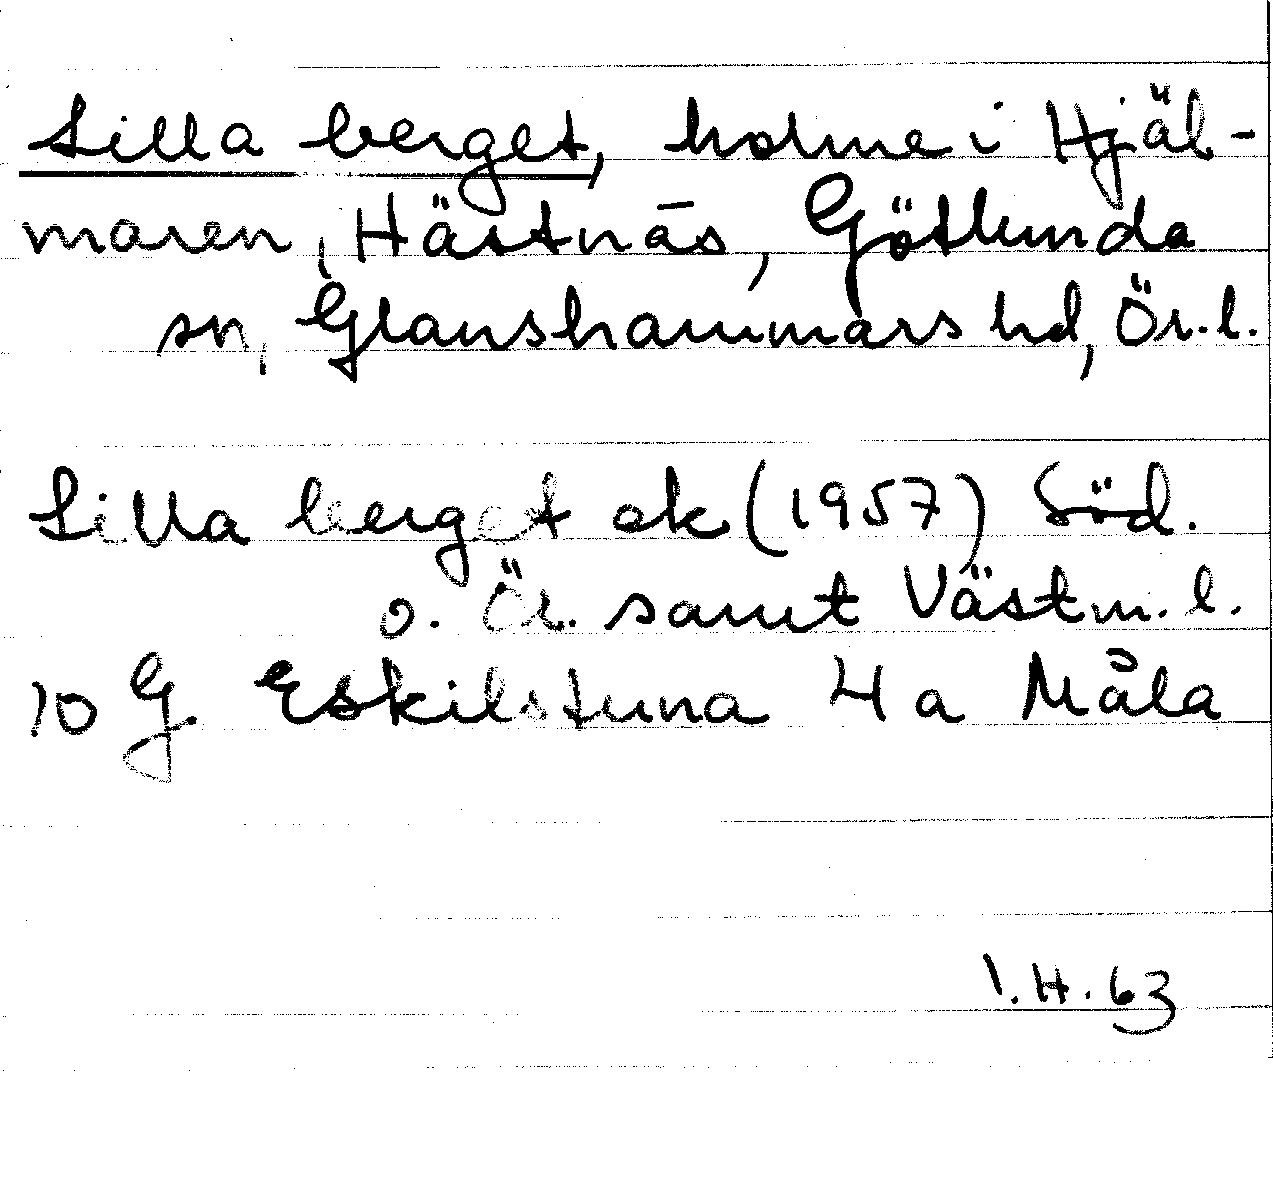 Lilla berget, holme i Hjäl-
maren, Hästnäs, Götlunda
sn, Glanshammars hd, Ör. l.
Lilla berget ek (1957) Söd.
o. Ör. samt Västm. l.
10 G Eskilstuna 4 a Måla
I. H. 63